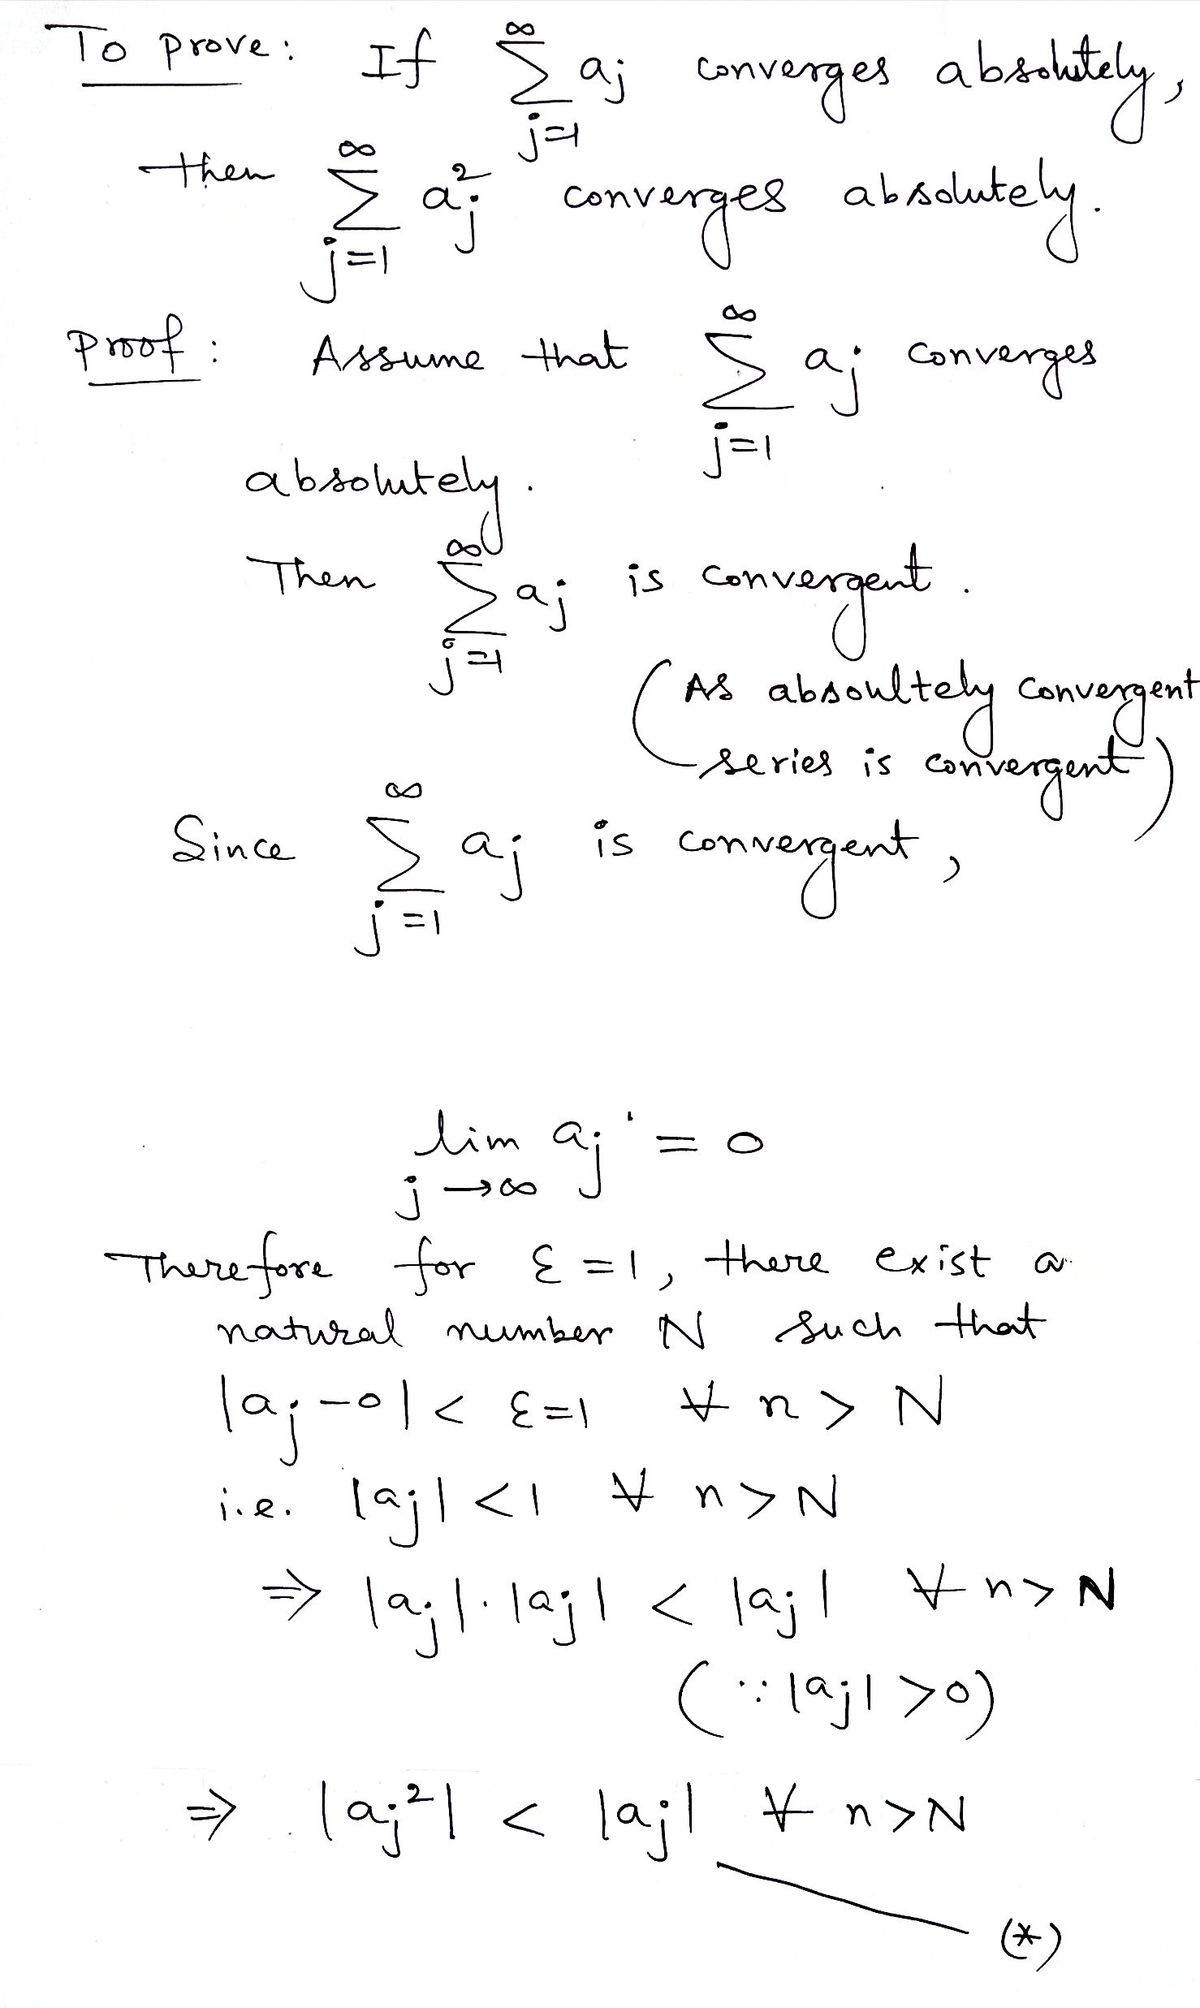 To prove: If ∑_{j=1}^{∞} a_j converges absolutely,
then ∑_{j=1}^{∞} a_j^2 converges absolutely.
Proof: Assume that ∑_{j=1}^{∞} a_j converges
absolutely.
Then ∑_{j=1}^{∞} a_j is convergent.
(As absoultely convergent
series is convergent)
Since ∑_{j=1}^{∞} a_j is convergent,
lim_{j→∞} a_j = 0
Therefore for ε=1, there exist a
natural number N such that
|a_j-0| < ε=1 ∀ n > N
i.e. |a_j| < 1 ∀ n > N
⇒ |a_j|.|a_j| < |a_j| ∀ n > N
(∵ |a_j| > 0)
⇒ |a_j^2| < |a_j| ∀ n > N
(*)